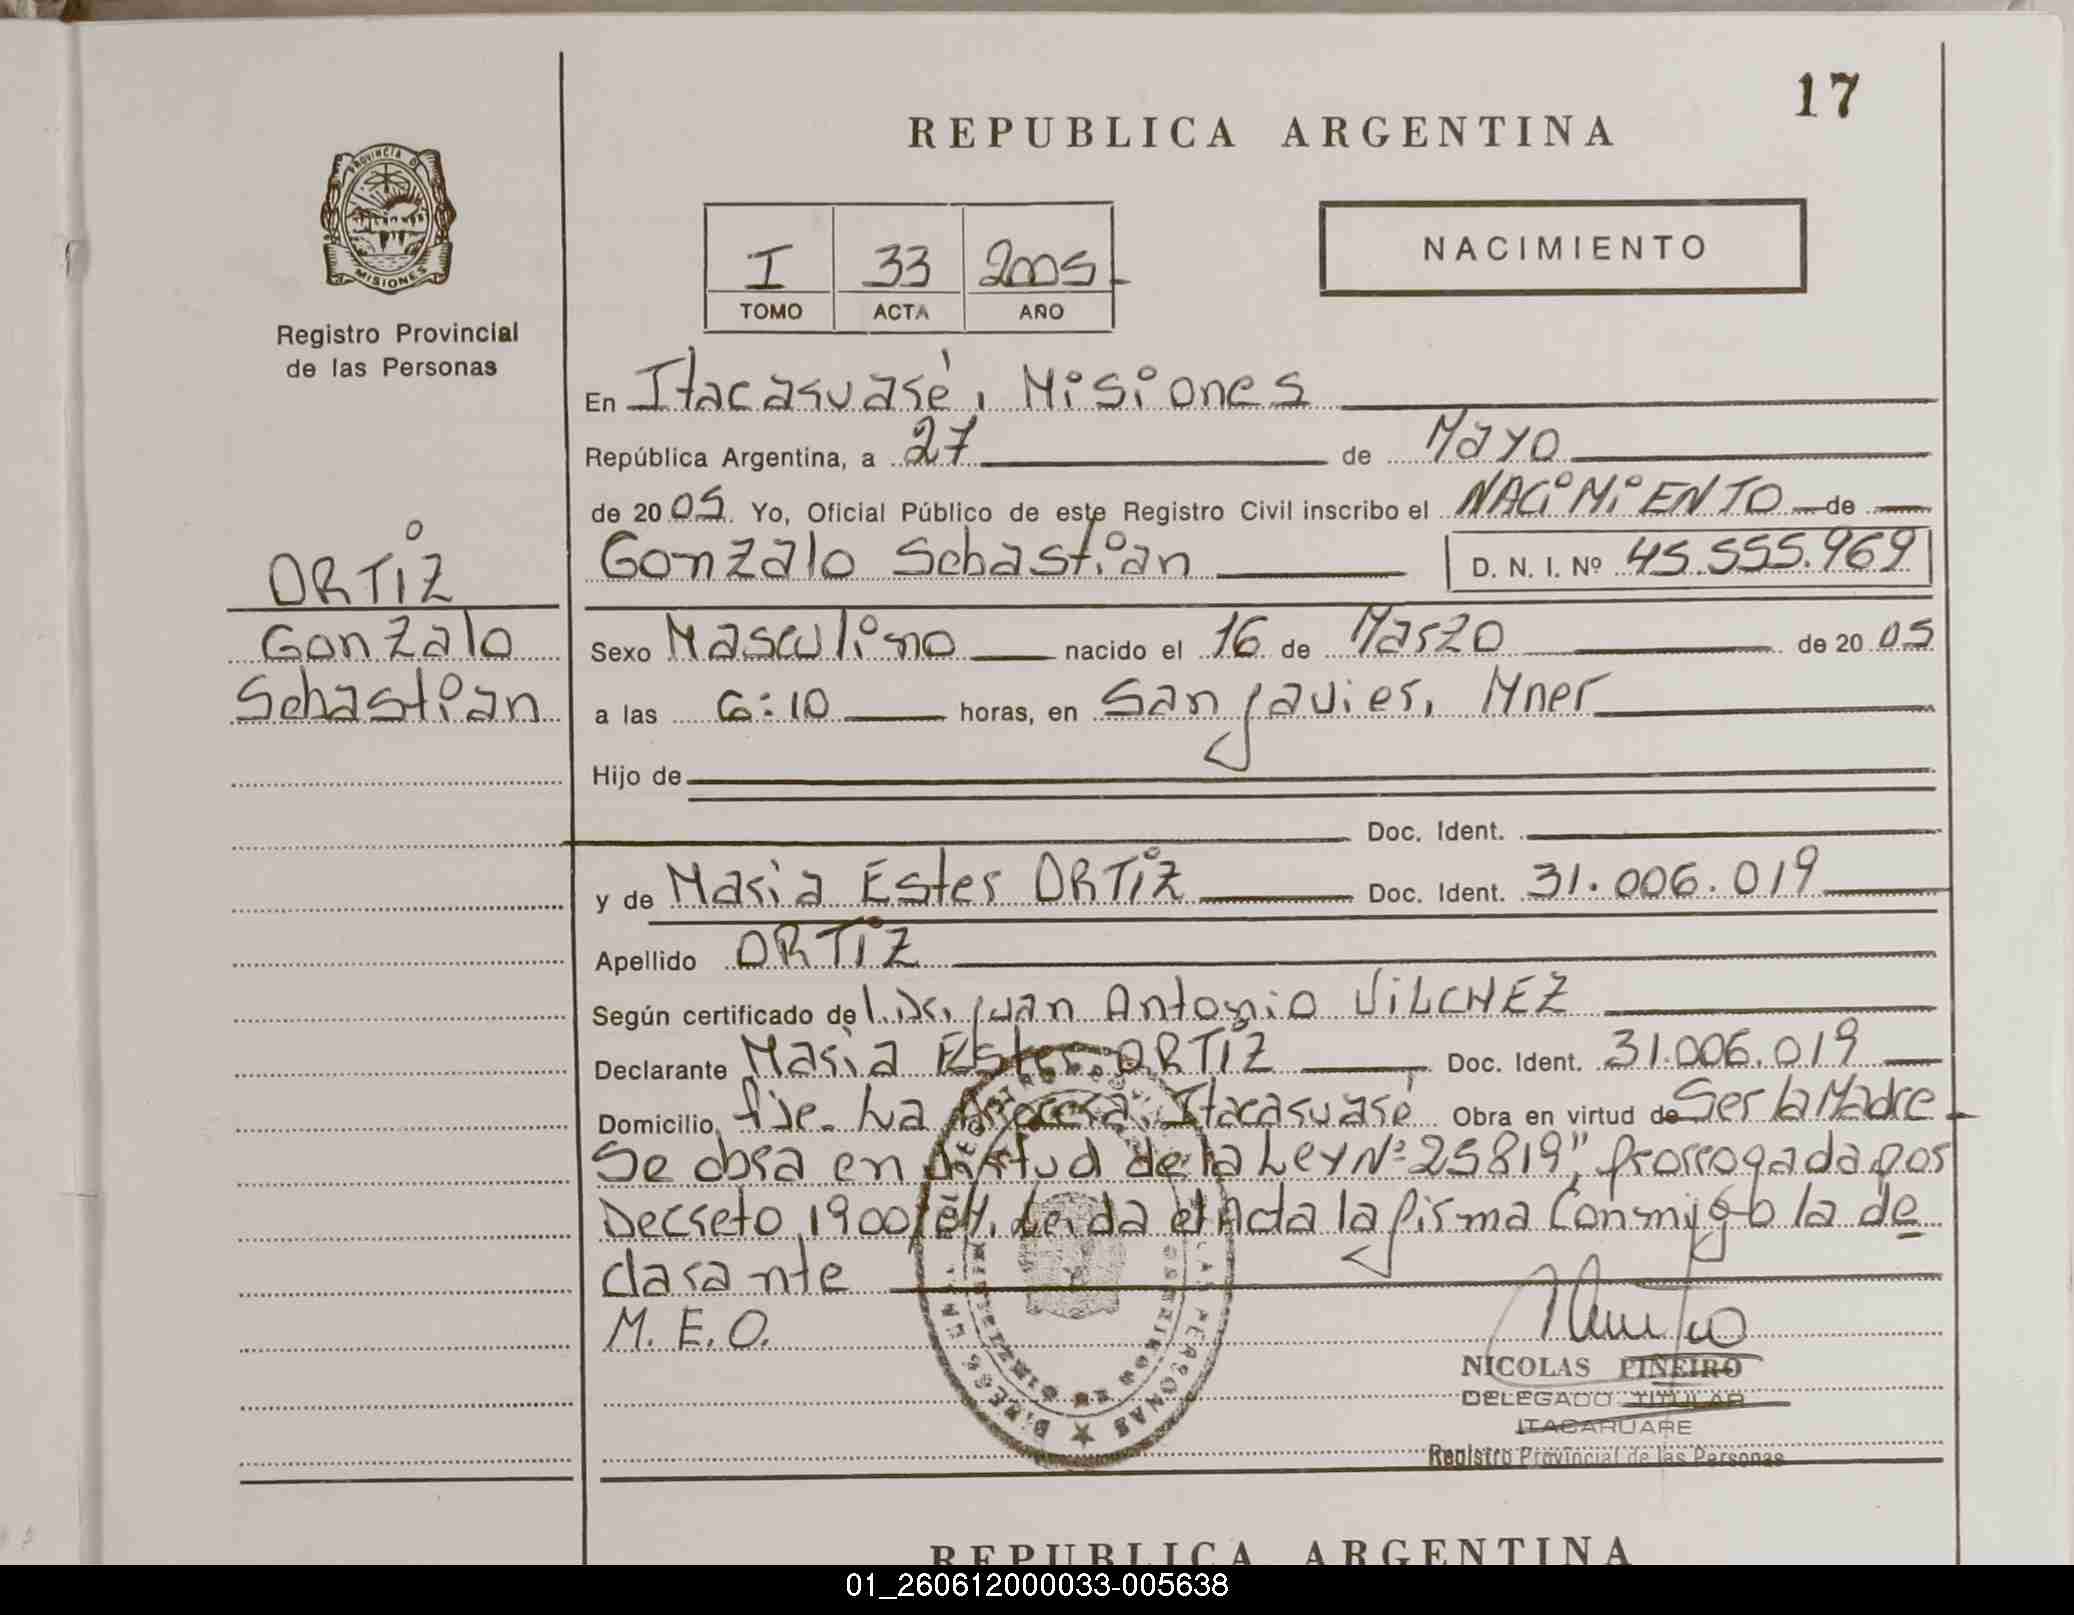 17
REPUBLICA ARGENTINA
PROVINCIA DE
MISIONES
Registro Provincial
de las Personas
I 33 2005
TOMO ACTA AÑO
NACIMIENTO
En Itacaruaré, Misiones
República Argentina, a 27 de Mayo
de 2005. Yo, Oficial Público de este Registro Civil inscribo el NACiMiENTO de
Gonzalo Sebastian D. N. I. Nº 45.555.969
ORTiZ
Gonzalo
Sebastian
Sexo Masculino nacido el 16 de Marzo de 2005
a las 6:10 horas, en San Javier, Mnes
Hijo de
Doc. Ident.
y de Maria Ester ORTiZ Doc. Ident. 31.006.019
Apellido ORTiZ
Según certificado de Juan Antonio ViLCHEZ
Declarante Maria Ester ORTiZ Doc. Ident. 31.006.019
Domicilio Itacaruaré Obra en virtud de Ser la Madre
Se obra en virtud de la Ley Nº 25819", prorrogada por
Decreto 1900/04. Leida el Acta la firma Conmigo la de
clarante
M. E. O.
NICOLAS PIÑEIRO
DELEGADO TITULAR
ITACARUARE
Registro Provincial de las Personas
REPUBLICA ARGENTINA
01_260612000033-005638